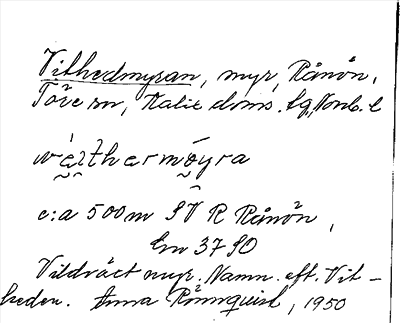 Vithedmyran, myr, Rånön,
Töre sn, Kalix doms. lg, Norrb. l
c:a 500 m SV R Rånön,
Em 37 SO
Vildväxt myr. Namn. eft. Vit-
heden. Anna Rönnquist, 1950